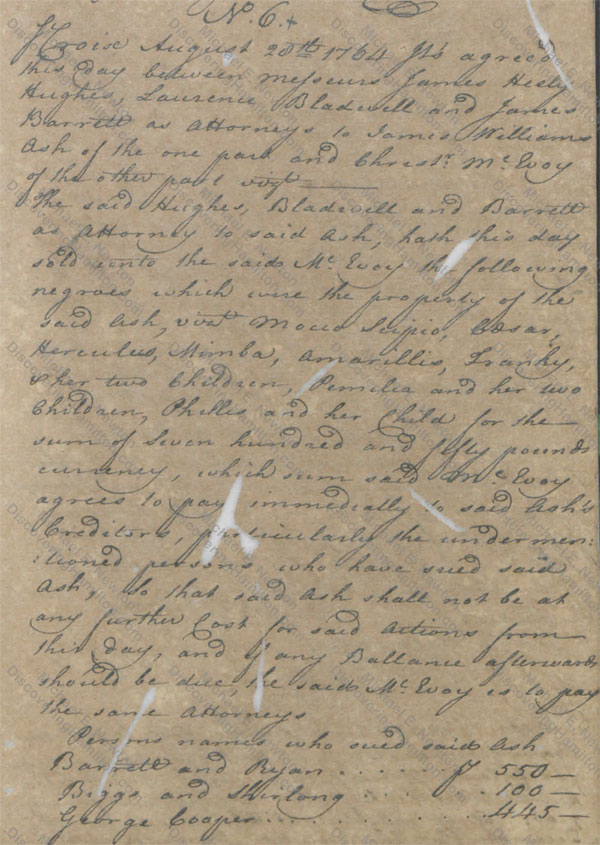 No. 6. +
St Croix August 20th 1764 It's agreed
this day between messeurs James Hesly
Hughes, Laurence Bladwell and James
Barrett as Attorneys to James Williams
Ash of the one part and Christr. Mc. Evoy
of the other part vizt
The said Hughes, Bladwell and Barrett
as Attorney to said Ash, hath this day
sold unto the said Mc. Evoy the following
negroes which were the property of the
said Ash, vizt Scipio, Cæsar,
Herculus, Mimba, Amarillis, Franky,
& her two Children, Pemilia and her two
Children, Phillis and her Child for the
sum of Seven hundred and fifty pounds
currency, which sum said Mc. Evoy
agrees to pay immedically to said Ash's
Creditors, particularly the undermen:
:tioned persons who have sued said
Ash, so that said Ash shall not be at
any further Cost for said Actions from
this day, and if any Ballance afterwards
should be due, the said Mc. Evoy is to pay
the same Attorneys
Persons names who sued said Ash
Barrett and Ryan . . . . . . . 550 —
Biggs and Skirlong . . . . . . 100 —
George Cooper . . . . . . . . . 445 —